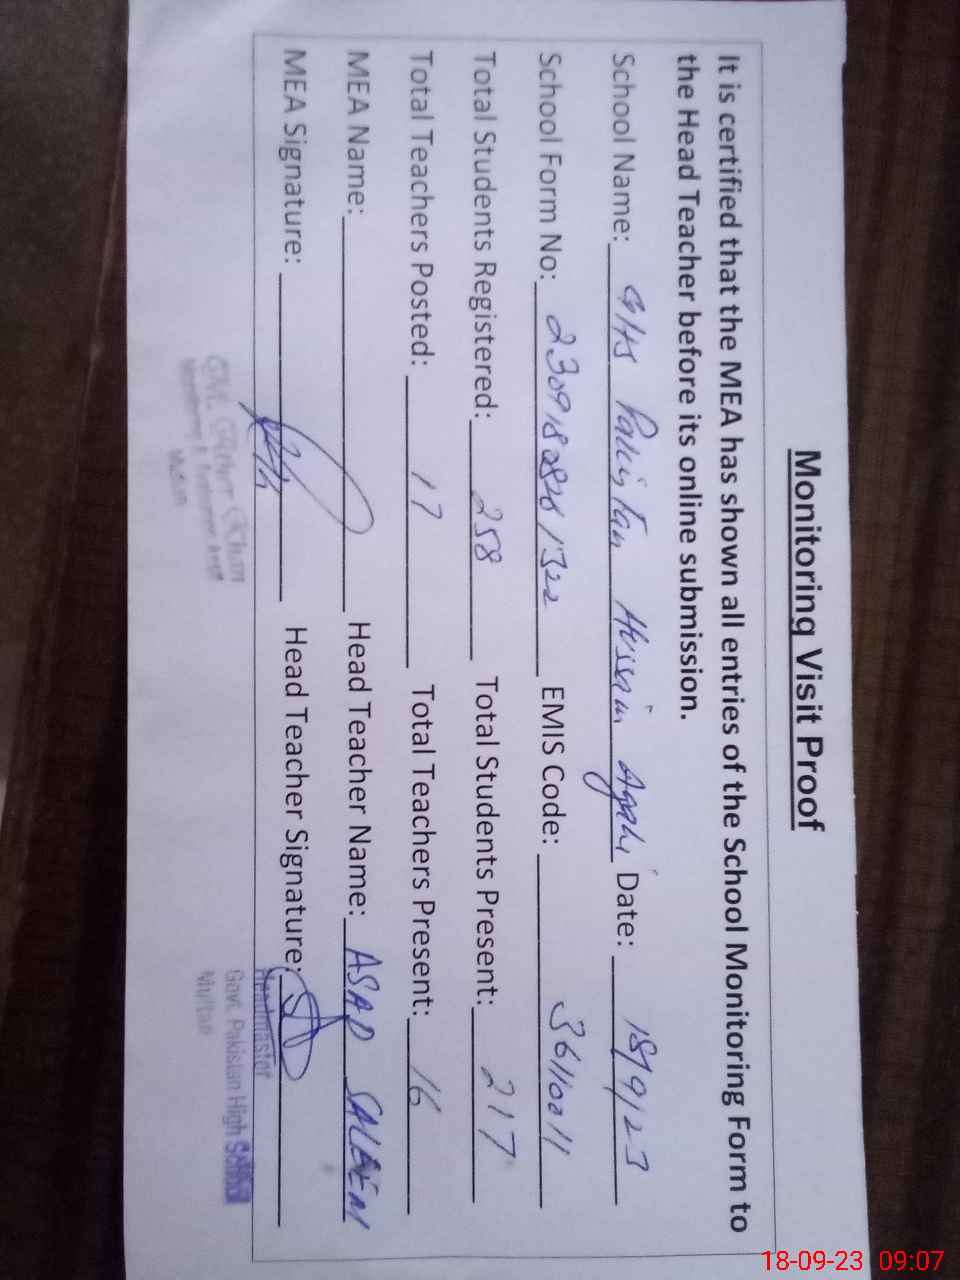 Monitoring Visit Proof
It is certified that the MEA has shown all entries of the School Monitoring Form to
the Head Teacher before its online submission.
School Name: GHS Pakistan Hussain Agahi Date: 18/9/23
School Form No: EMIS Code: 36110011
Total Students Registered: 258 Total Students Present: 217
Total Teachers Posted: 17 Total Teachers Present: 16
MEA Name: Head Teacher Name: ASAD SALEEM
MEA Signature: Head Teacher Signature:
Headmaster
Govt. Pakistan High
Multan
Khan
Multan
18-09-23 09:07